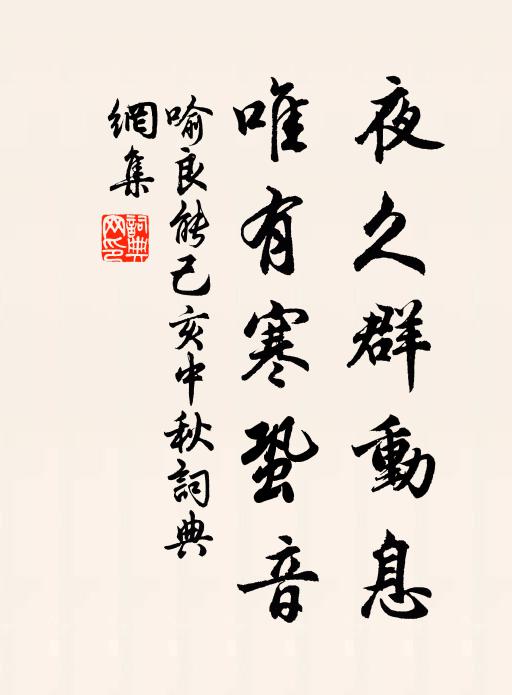 夜久群動息
唯有寒蛩音
喻良能己亥中秋詞典
網集
詞典網印